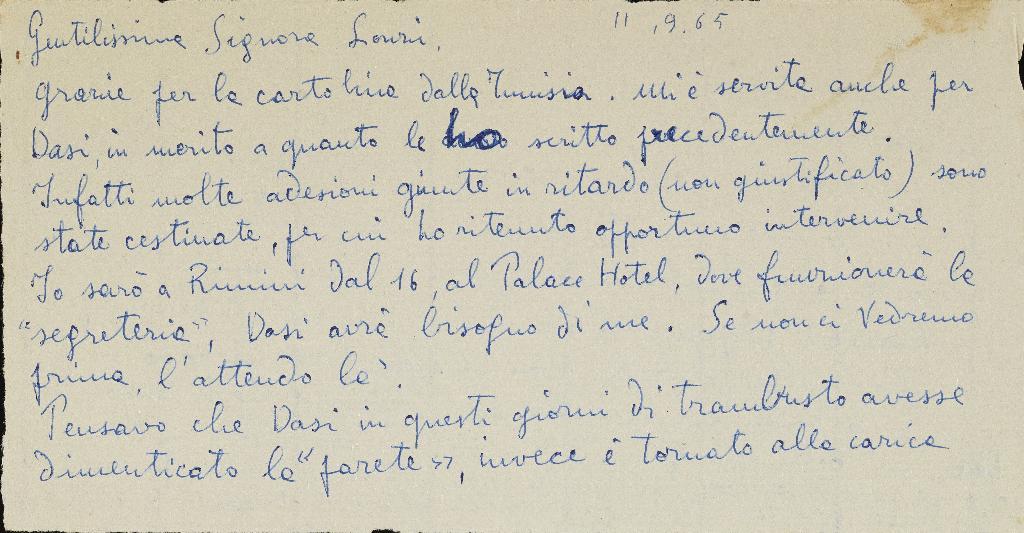 11.9.65
Gentilissima Signora Lonzi,
grazie per la cartolina dalla Tunisia. Mi è servita anche per
Dasi, in merito a quanto le ho scritto precedentemente.
Infatti molte adesioni giunte in ritardo (non giustificato) sono
state cestinate, per cui ho ritenuto opportuno intervenire.
Io sarò a Rimini dal 16, al Palace Hotel, dove funzionerà la
"segreteria", Dasi avrà bisogno di me. Se non ci vedremo
prima, l'attendo là.
Pensavo che Dasi in questi giorni di trambusto avesse
dimenticato la "parete", invece è tornato alla carica